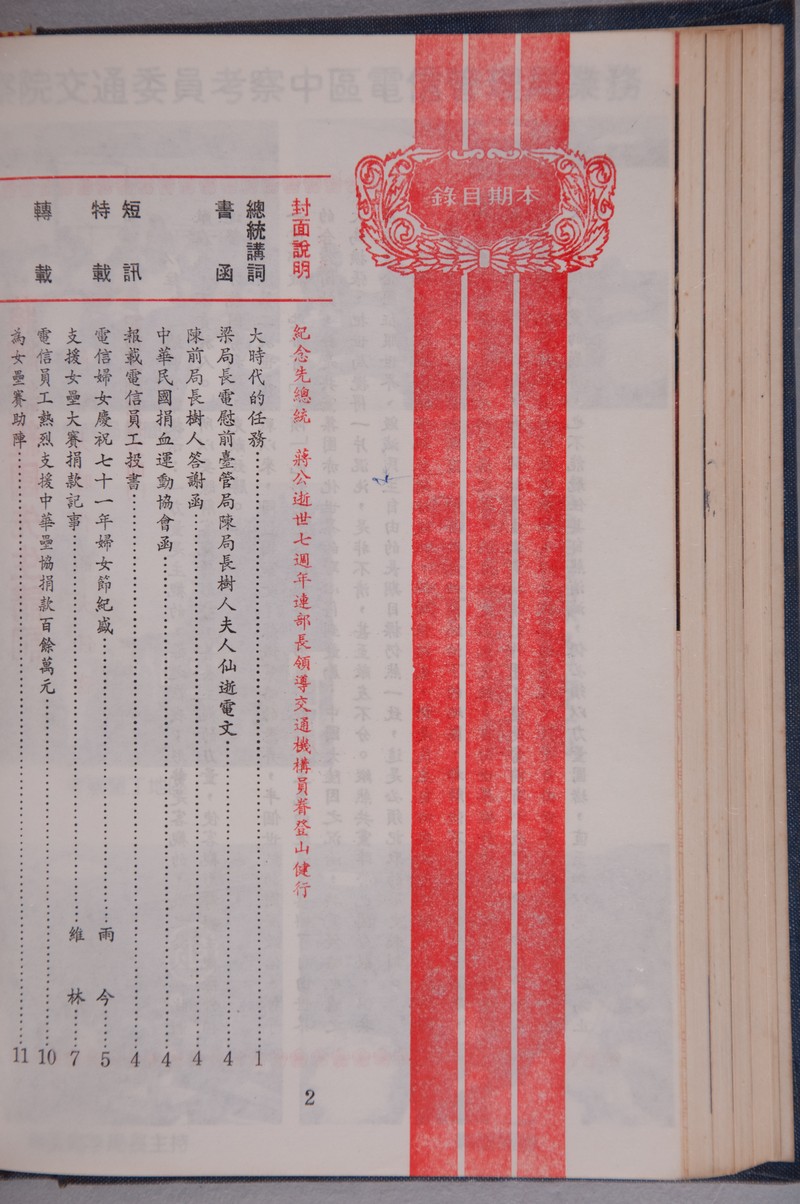 本期目錄
封面說明
紀念先總統　蔣公逝世七週年連部長領導交通機構員眷登山健行
總統講詞
大時代的任務……1
書函
梁局長電慰前臺管局陳局長樹人夫人仙逝電文……4
陳前局長樹人答謝函……4
中華民國捐血運動協會函……4
短訊
報載電信員工投書……4
特載
電信婦女慶祝七十一年婦女節紀盛……雨今……5
支援女壘大賽捐款記事……維林……7
轉載
電信員工熱烈支援中華壘協捐款百餘萬元……10
為女壘賽助陣……11
2